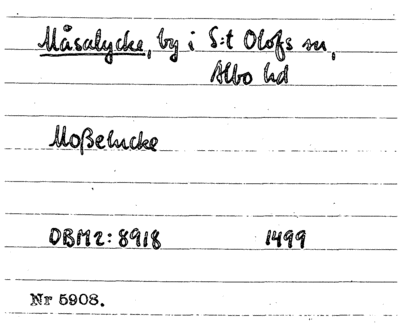 Måsalycke, by i S:t Olofs sn,
Albo hd
Moßelucke
DBM2:8918 1499
Nr 5908.